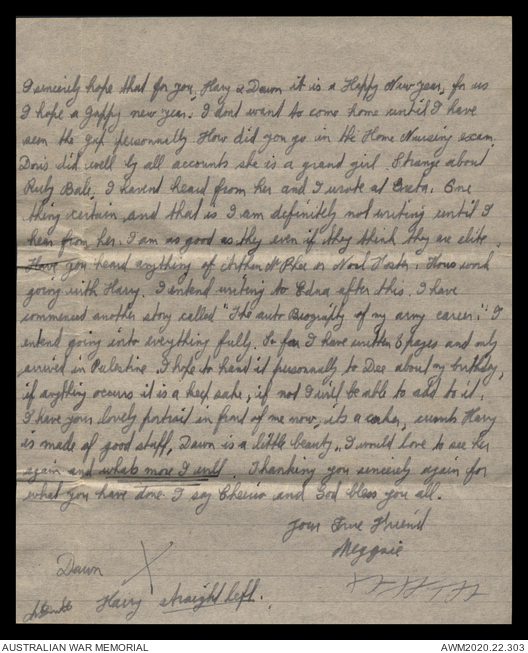 I sincerely hope that for you, Harry & Dawn it is a Happy New year, for us
I hope a Jappy new year. I dont want to come home until I have
seen the Jap personnally How did you go in the Home Nursing exam.
Doris did well by all accounts she is a grand girl. Strange about
Ruby Ball. I havent heard from her and I wrote at Creta. One
thing certain and that is I am definitely not writing until I
hear from her. I am as good as they even if they think they are elite.
Have you heard anything of McPhee or Noel Foster. Hows work
going with Harry. I intend writing to Edna after this. I have
commenced another story called "The auto Biography of my army career." I
intend going into everything fully. So far I have written 6 pages and only
arrived in Palestine. I hope to hand it personally to Dee about my birthday,
if anything occurs it is a keep sake, if not I will be able to add to it.
I have your lovely portrait in front of me now, its a corker, Harry
is made of good stuff, Dawn is a little beauty. I would love to see her
again and whats more I will. Thanking you sincerely again for
what you have done I say Cheerio and God bless you all.
Your True Friend
Meggsie
Dawn X
Harry straight left.
AUSTRALIAN WAR MEMORIAL
AWM2020.22.303